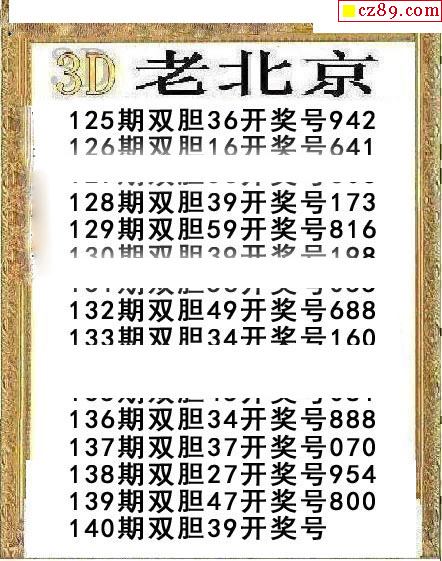 cz89.com
3D 老北京
125期双胆36开奖号942
126期双胆16开奖号641
128期双胆39开奖号173
129期双胆59开奖号816
132期双胆49开奖号688
133期双胆34开奖号160
136期双胆34开奖号888
137期双胆37开奖号070
138期双胆27开奖号954
139期双胆47开奖号800
140期双胆39开奖号